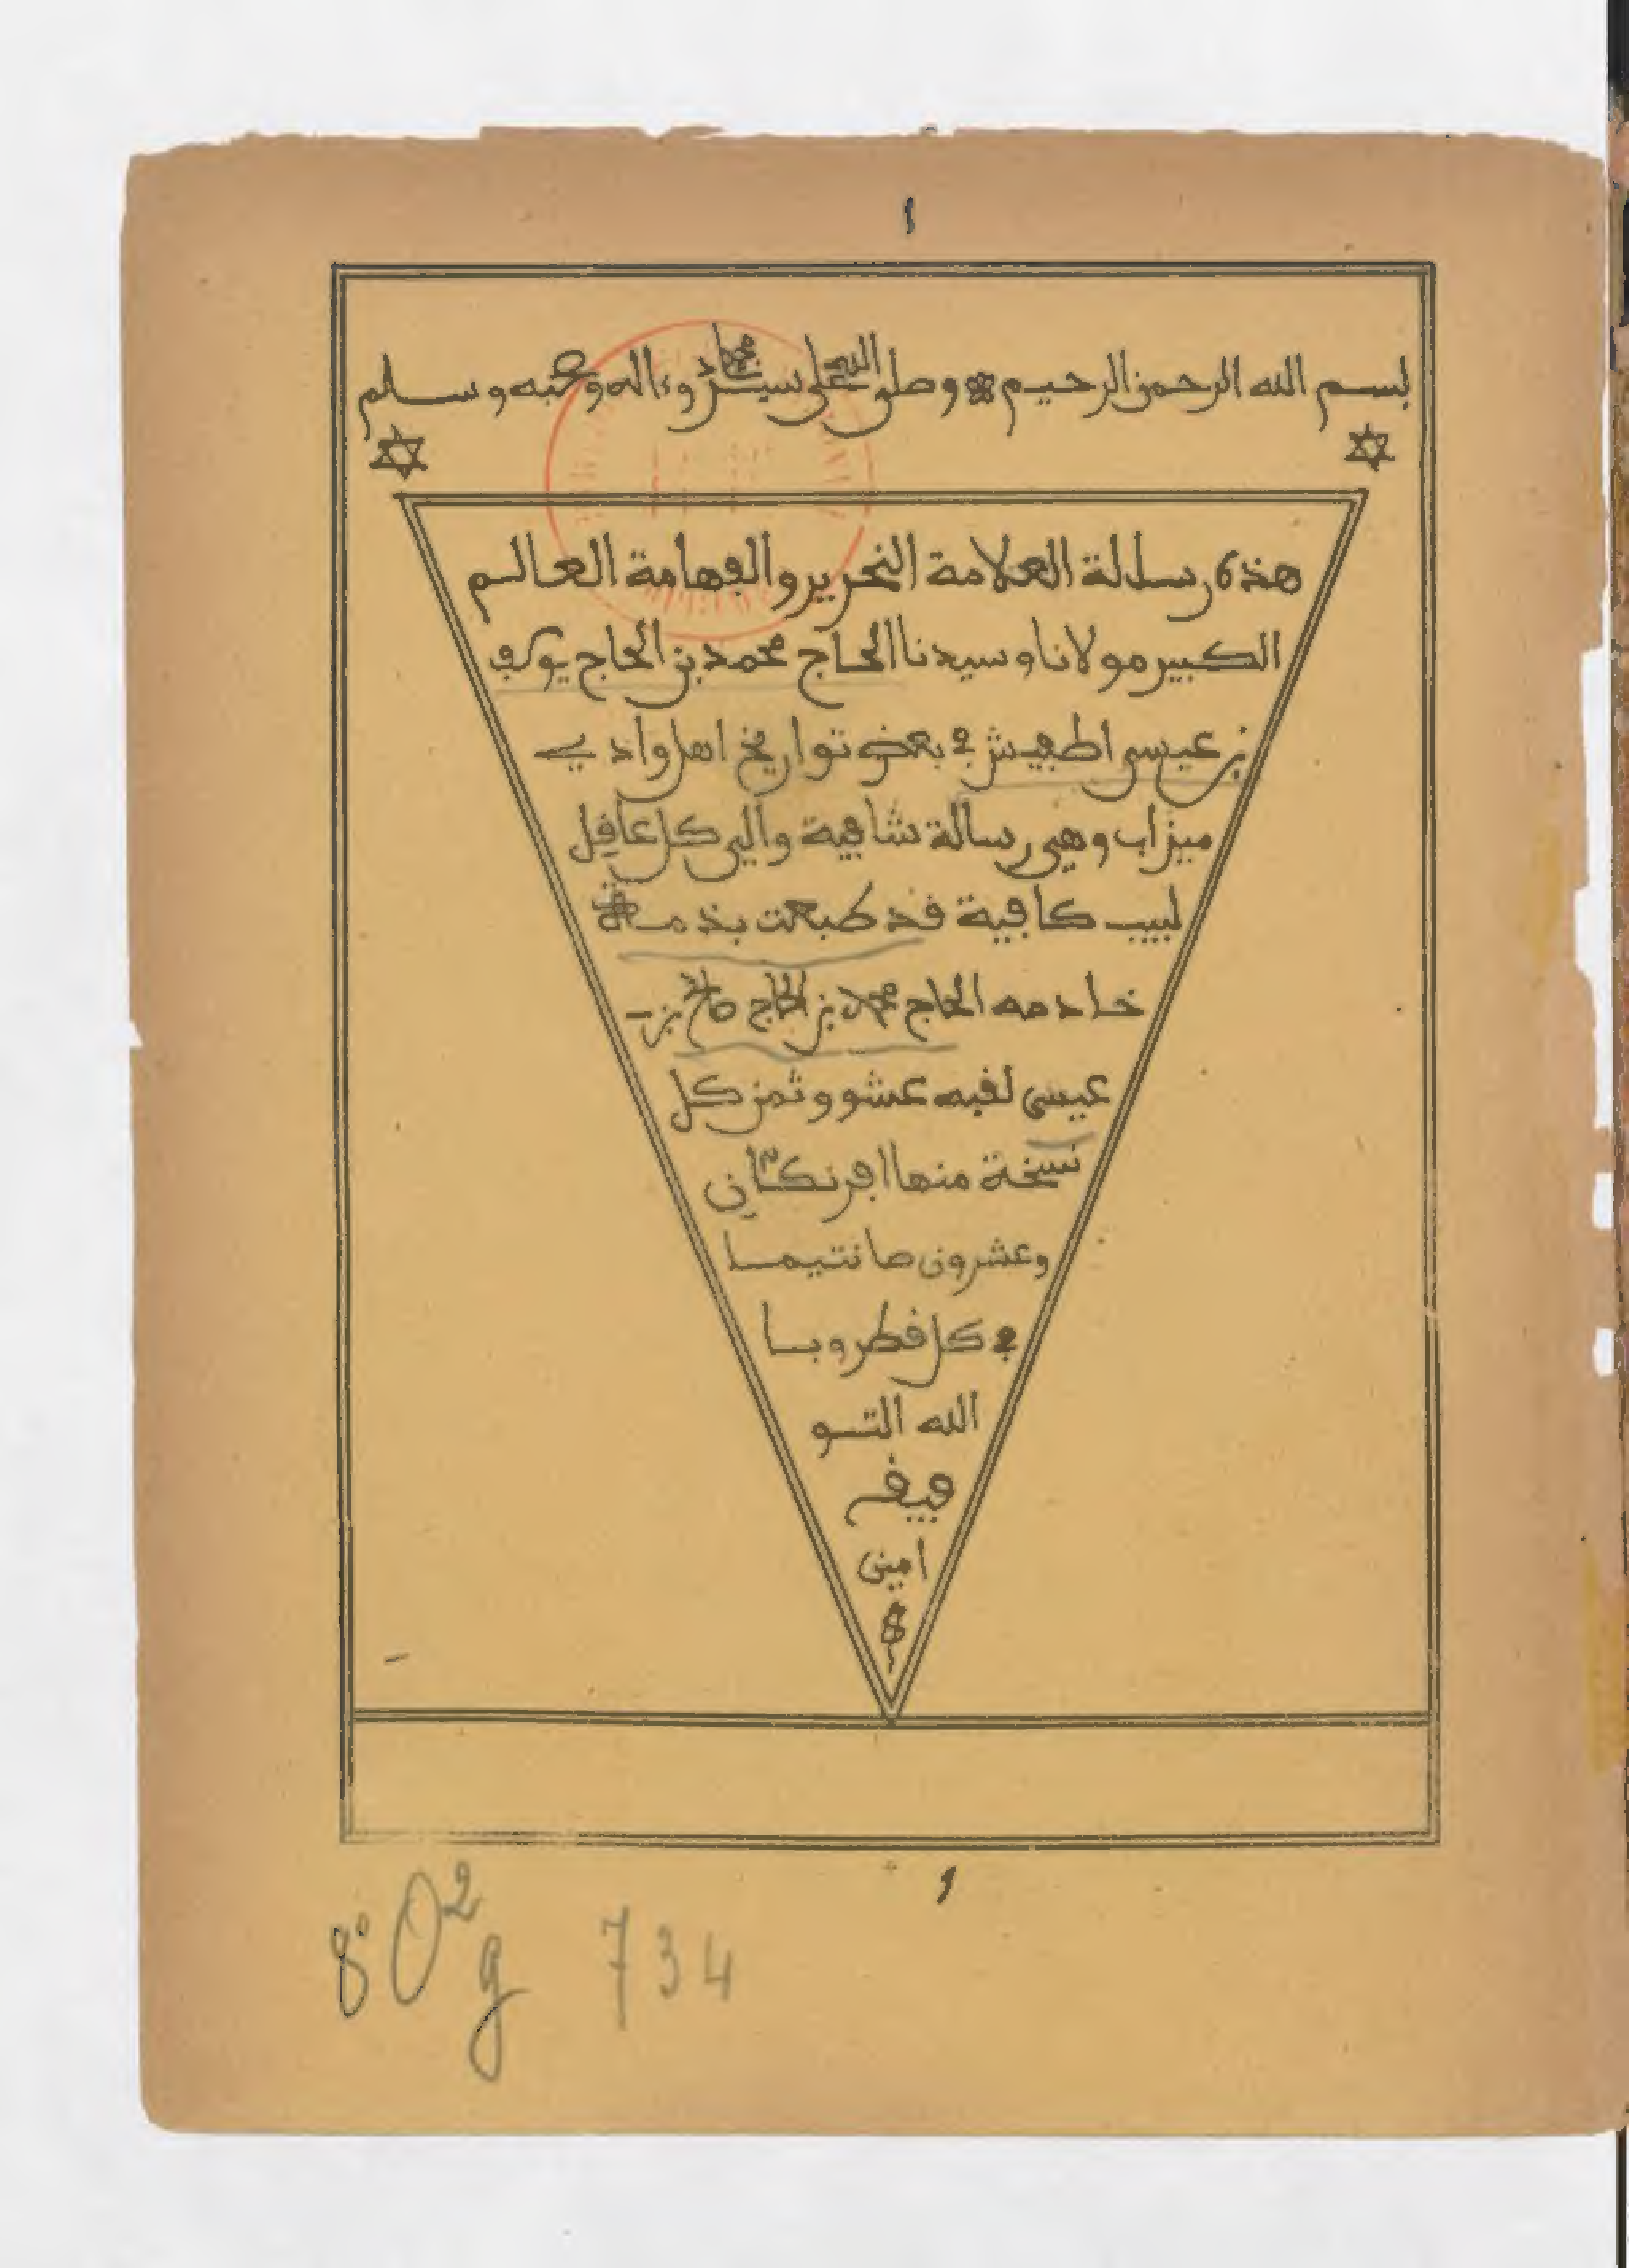 ١
بسم الله الرحمن الرحيم وصلى الله على سيدنا محمد وءاله وصحبه وسلم
هذه رسالة العلامة النحرير والفهامة العالم
الكبير مولانا وسيدنا الحاج محمد بن الحاج يوسف
بن عيسى اطفيش في بعض تواريخ اهل وادي
ميزاب وهي رسالة شافية والى كل عاقل
لبيب كافية قد طبعت بذمة
خادمه الحاج محمد بن الحاج صالح بن
عيسى لقبه عشو وثمن كل
نسخة منها افرنكان
وعشرون صانتيما
في كل قطر وبا
الله التو
فيق
امين
١
8° O² g 734